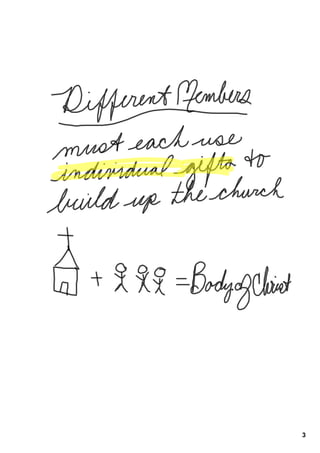 Different Members
must each use
individual gifts to
build up the church
+ = Body of Christ
3